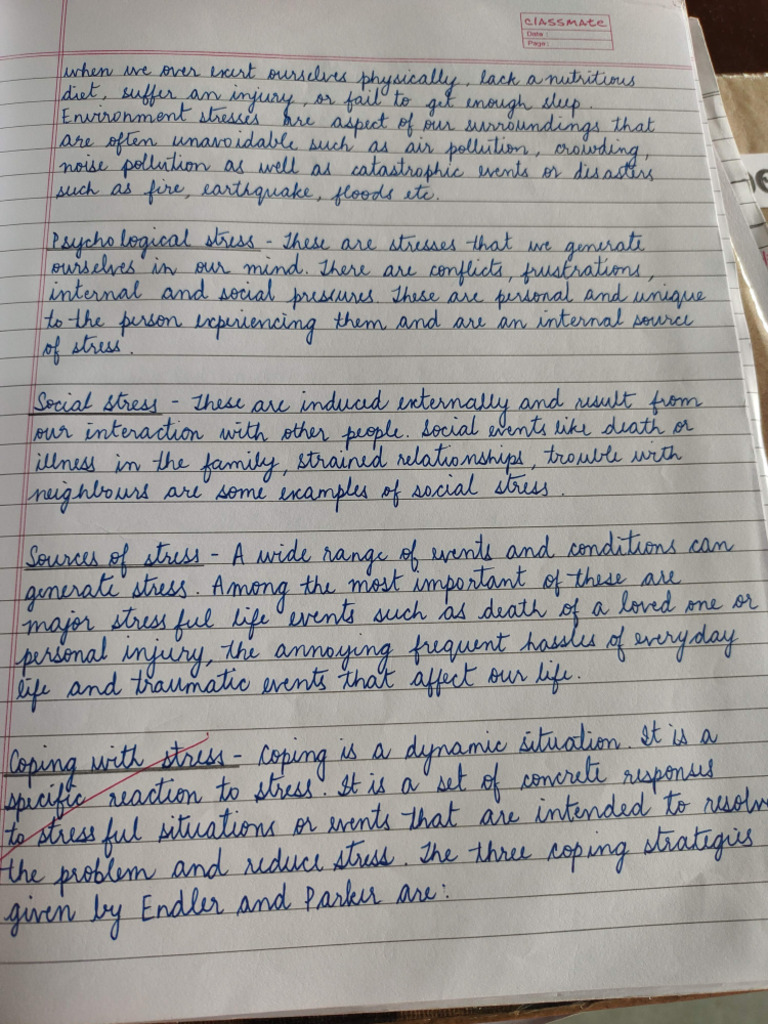 classmate
Date :
Page :
when we over exert ourselves physically, lack a nutritious
diet, suffer an injury, or fail to get enough sleep.
Environment stresses are aspect of our surroundings that
are often unavoidable such as air pollution, crowding,
noise pollution as well as catastrophic events or disasters
such as fire, earthquake, floods etc.
Psychological stress - These are stresses that we generate
ourselves in our mind. There are conflicts, frustrations,
internal and social pressures. These are personal and unique
to the person experiencing them and are an internal source
of stress.
Social stress - These are induced externally and result from
our interaction with other people. Social events like death or
illness in the family, strained relationships, trouble with
neighbours are some examples of social stress.
Sources of stress - A wide range of events and conditions can
generate stress. Among the most important of these are
major stressful life events such as death of a loved one or
personal injury, the annoying frequent hassles of everyday
life and traumatic events that affect our life.
Coping with stress - Coping is a dynamic situation. It is a
specific reaction to stress. It is a set of concrete responses
to stressful situations or events that are intended to resolve
the problem and reduce stress. The three coping strategies
given by Endler and Parker are: